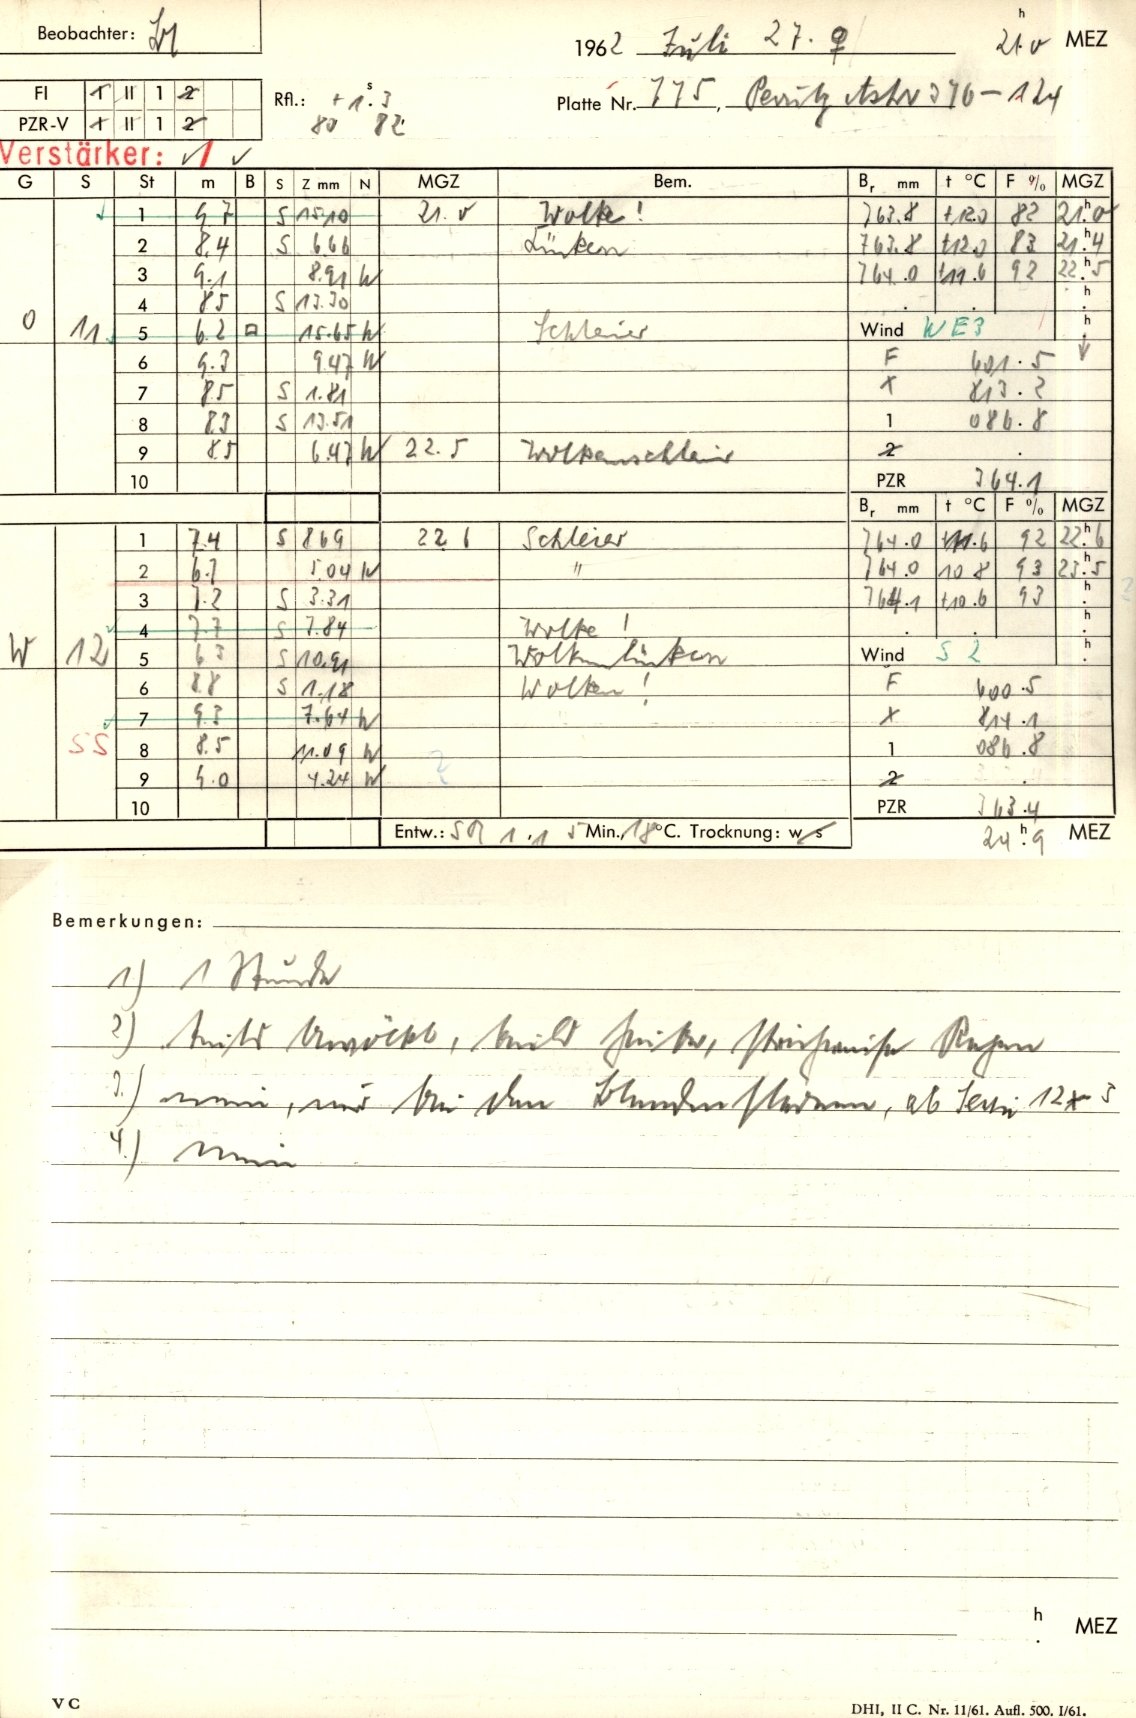 Beobachter:
1962 Juli 27. ♀ 21.0 h MEZ
FI 1 II 1 2
PZR-V 1 II 1 2
Rfl.: + 1.3 s
80 82
Platte Nr. 775, Perutz Astro 376-124
Verstärker: √ 1 √
G S St m B S Z mm N MGZ Bem. Br mm t °C F % MGZ
1 9.7 S 15.10 21.0 Wolke! 763.8 +12.3 82 21.0 h
2 8.4 S 6.66 Lücken 763.8 +12.3 83 21.4 h
3 9.1 8.91 W 764.0 +11.6 92 22.5 h
4 8.5 S 13.30 h
O 11 5 6.2 15.65 W Schleier Wind W E3 h
6 9.3 9.47 W F 601.5
7 8.5 S 1.81 X 813.2
8 8.3 S 13.51 1 086.8
9 8.5 6.47 W 22.5 Wolkenschleier 2
10 PZR 364.1
Br mm t °C F % MGZ
1 7.4 S 8.69 22.6 Schleier 764.0 +11.6 92 22.6 h
2 6.7 5.04 W " 764.0 10.8 93 23.5 h
3 7.2 S 3.31 764.1 +10.6 93 h
4 7.7 S 7.84 Wolke! h
W 12 5 6.5 S 10.91 Wolkenlücken Wind S 2 h
6 8.8 S 1.18 Wolken! F 600.5
7 9.3 7.64 W X 814.1
SS 8 8.5 11.09 W 1 086.8
9 9.0 4.24 W 2
10 PZR 363.4
Entw.: 5 Min. 18 °C. Trocknung: w s 24.9 h MEZ
Bemerkungen:
1.) 1 Stunde
2.) teils bewölkt, teils heiter, strichweise Regen
3.) nein, nur bei den Blendensternen, ab Serie 12
4.) nein
h MEZ
V C
DHI, II C. Nr. 11/61. Aufl. 500. I/61.